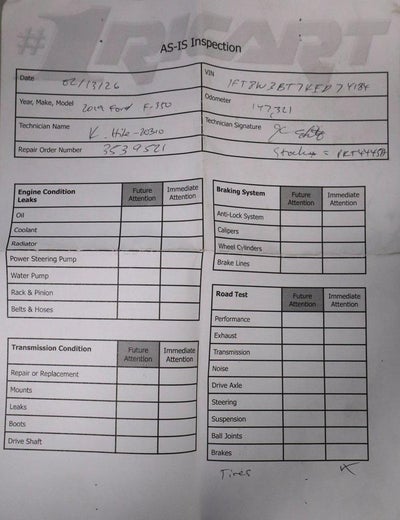 #1 RICART
AS-IS Inspection
Date 02/13/26
VIN 1FT8W3BT7KED74184
Year, Make, Model 2019 Ford F-350
Odometer 147,321
Technician Name K. Hile-20310
Technician Signature
Repair Order Number 3539521
Stock# = PRT44458A
Engine Condition Future Attention Immediate Attention
Leaks
Oil
Coolant
Radiator
Power Steering Pump
Water Pump
Rack & Pinion
Belts & Hoses
Braking System Future Attention Immediate Attention
Anti-Lock System
Calipers
Wheel Cylinders
Brake Lines
Transmission Condition Future Attention Immediate Attention
Repair or Replacement
Mounts
Leaks
Boots
Drive Shaft
Road Test Future Attention Immediate Attention
Performance
Exhaust
Transmission
Noise
Drive Axle
Steering
Suspension
Ball Joints
Brakes
Tires X